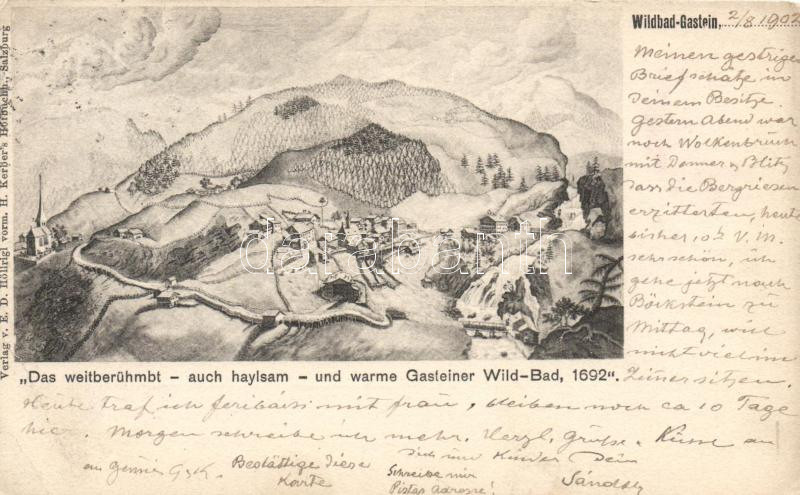 Wildbad-Gastein, 2/8 1902
Meinen gestrigen
Brief schätze in
Deinem Besitze.
Gestern Abend war
noch Wolkenbruch
mit Donner & Blitz
dass die Bergriesen
erzitterten, heut
bisher, 10h V.M.
sehr schön, ich
gehe jetzt nach
Böckstein zu
Mittag, will
nicht viel im
Zimer sitzen.
Verlag v. E. D. Höllrigl vorm. H. Kerber's Hofbuchh., Salzburg
darabanth
„Das weitberühmbt – auch haylsam – und warme Gasteiner Wild-Bad, 1692“.
Heute traf ich mit frau, bleiben noch ca 10 Tage
hier. Morgen schreibe ich mehr. Herzl. Grüsse & Küsse an
Dich und Kinder Dein
Sándor
Bestättige diese
Karte
Schreibe mir
Pistas Adresse!